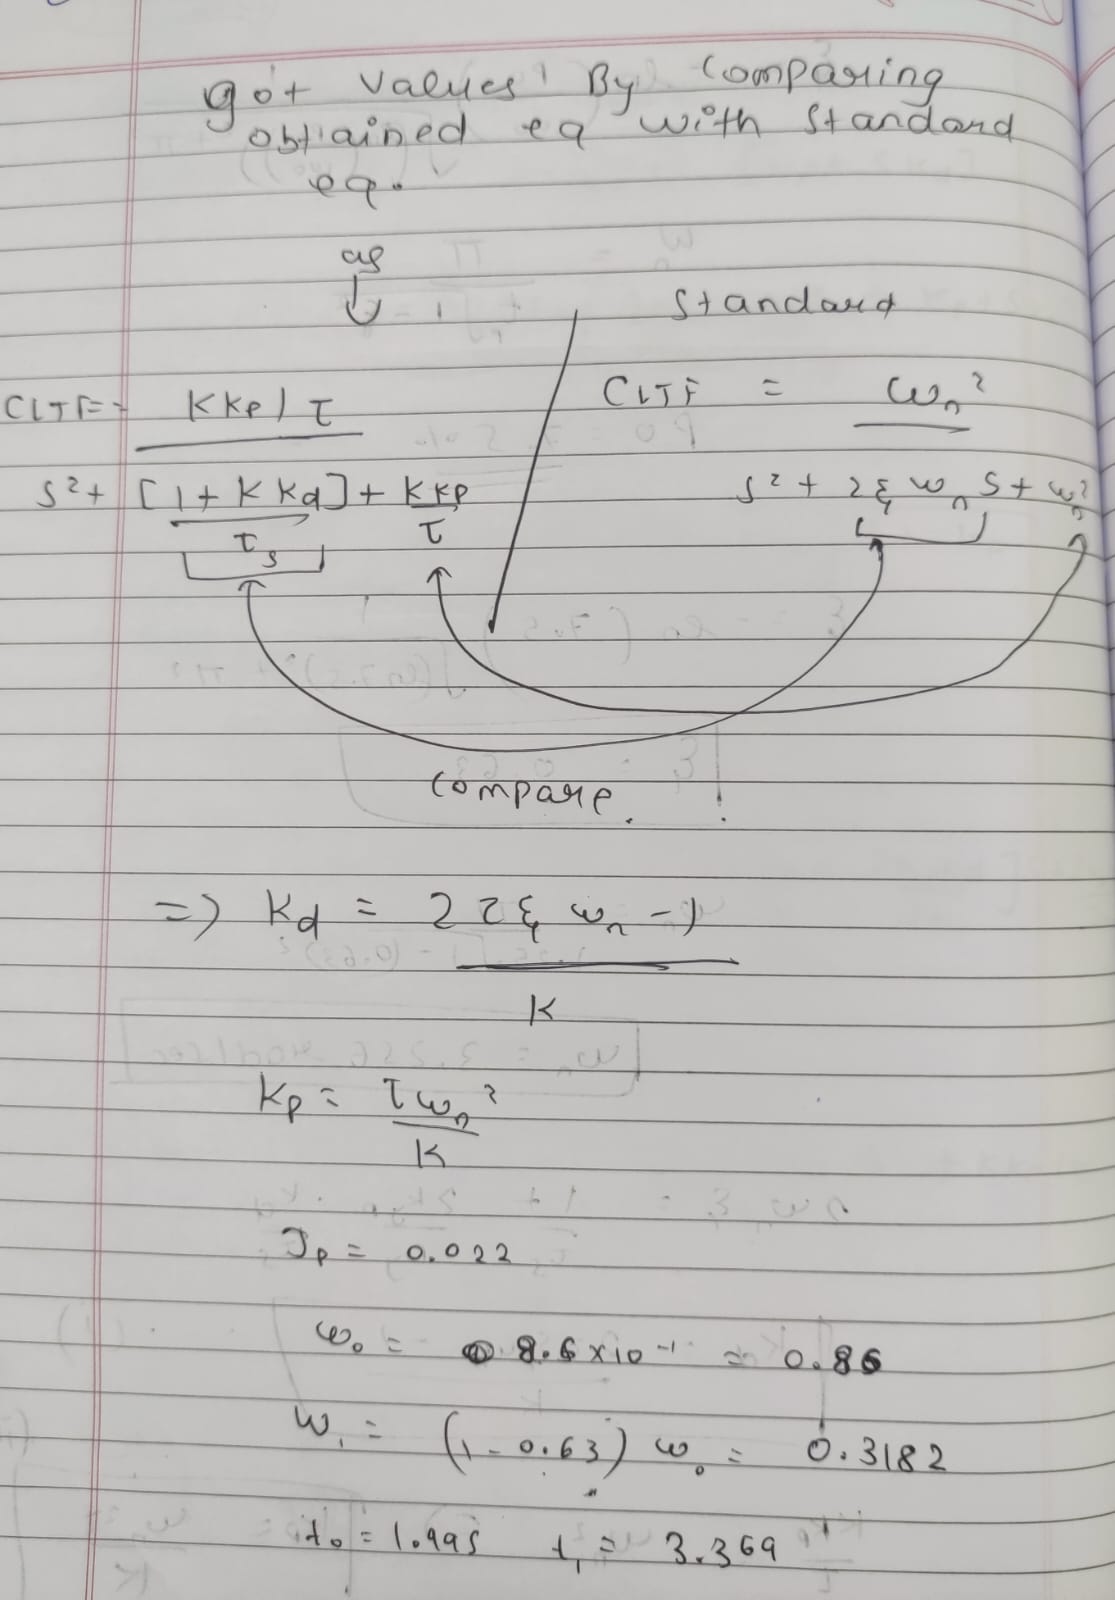 got values By comparing
obtained eq with standard
eq.
as
standard
CLTF = KKp/τ
CLTF = ωn²
s² + [1 + K Kd] + KKp
s² + 2ξ ωn s + ωn²
τs τ
compare.
=> Kd = 2τξ ωn - 1
K
Kp = τωn²
K
Jp = 0.022
ω₀ = 8.6 × 10⁻¹ = 0.86
W₁ = (1 - 0.63) ω₀ = 0.3182
t₀ = 1.995 t₁ = 3.369